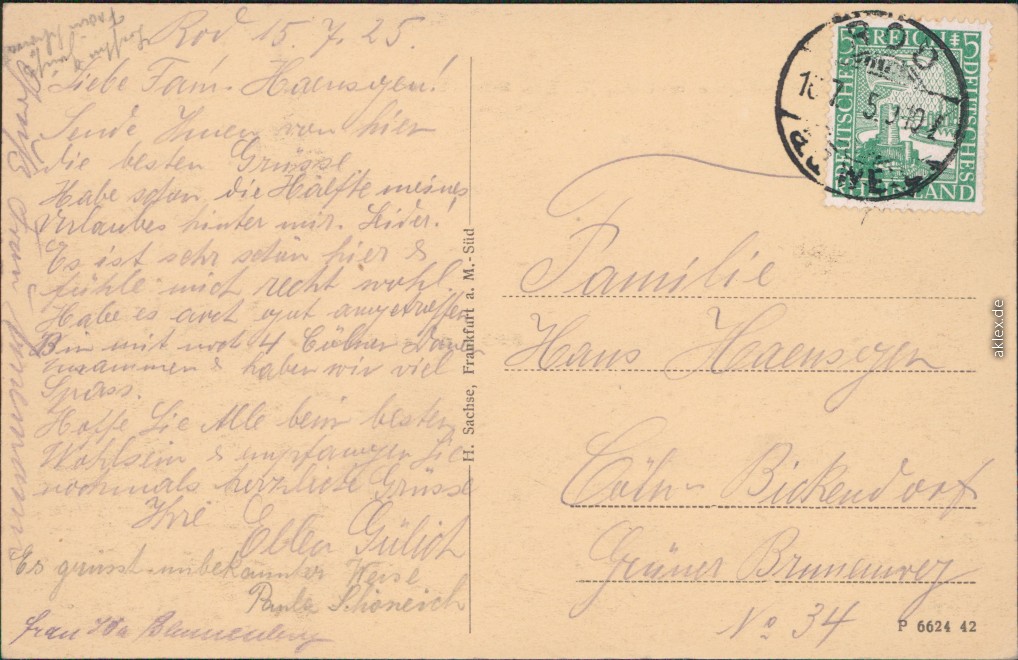 Rod 15.7.25.
Liebe Fam. Haensgen!
Sende Ihnen von hier
die besten Grüsse
Habe schon die Hälfte meines
Urlaubes hinter mir. Leider!
Es ist sehr schön hier &
fühle mich recht wohl.
Habe es auch gut angetroffen
Bin mit noch 4 Cölner
zusammen & haben wir viel
Spass.
Hoffe Sie Alle beim besten
Wohlsein & empfangen Sie
nochmals herzliche Grüsse
Ihre
Gülich
Es grüsst unbekannter Weise
Paula Schöneich
Frau Ida Blumenberg
H. Sachse, Frankfurt a. M.-Süd
ROD
DEUTSCHES REICH
5 5
DEUTSCHES
RHEINLAND
Familie
Hans Haensgen
Cöln-Bickendorf
Grüner Brunnenweg
No 34
P 6624 42
aklex.de